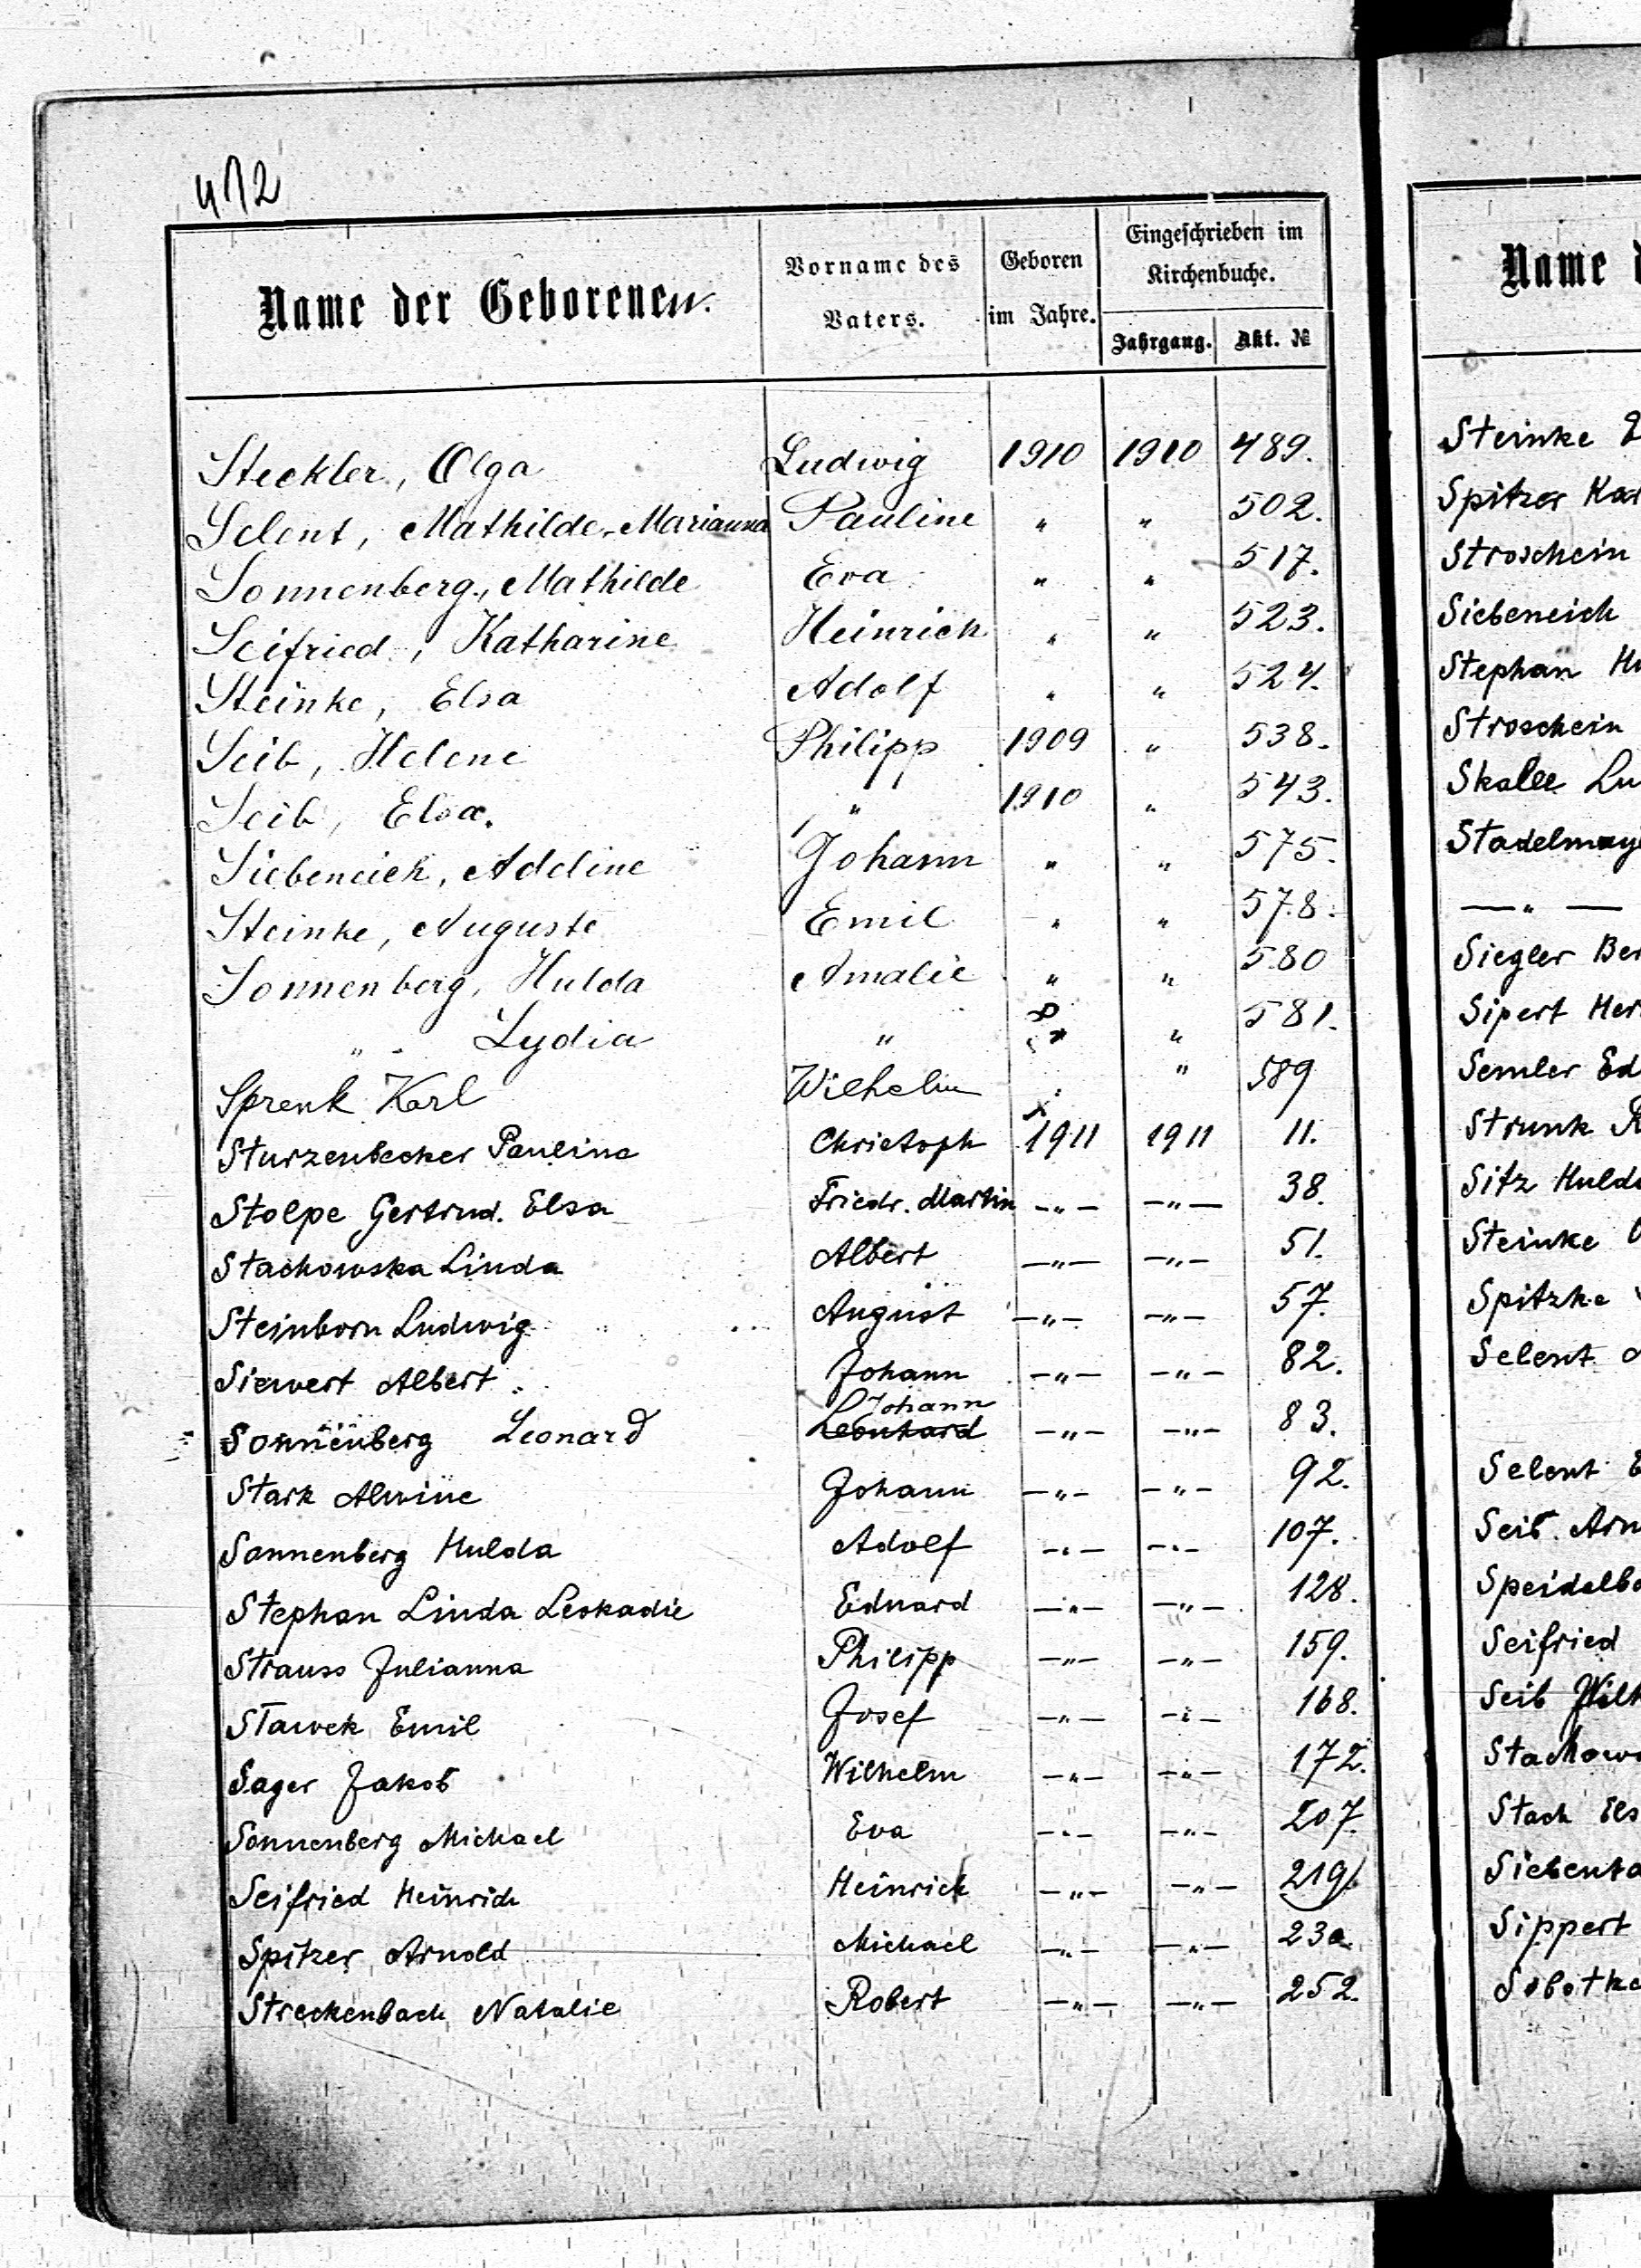 412
Name der Geborenen.
Vorname des Vaters.
Geboren im Jahre.
Eingeschrieben im Kirchenbuche.
Jahrgang. Akt. №
Steckler, Olga Ludwig 1910 1910 489.
Selent, Mathilde-Marianna Pauline " " 502.
Sonnenberg, Mathilde Eva " " 517.
Seifried, Katharine Heinrich " " 523.
Steinke, Elsa Adolf " " 524.
Seib, Helene Philipp 1909 " 538.
Seib, Elsa. " 1910 " 543.
Siebeneich, Adeline Johann " " 575.
Steinke, Auguste Emil " " 578.
Sonnenberg, Hulda Amalie " " 580
" " Lydia " " 581.
Sprenk Karl Wilhelm " 589
Sturzenbecker Pauline Christoph 1911 1911 11.
Stolpe Gertrud. Elsa Friedr. Martin —"— —"— 38.
Stachowska Linda Albert —"— —"— 51.
Steinborn Ludwig August —"— —"— 57.
Siewert Albert Johann —"— —"— 82.
Sonnenberg Leonard Johann Leonhard —"— —"— 83.
Stark Alwine Johann —"— —"— 92.
Sonnenberg Hulda Adolf —"— —"— 107.
Stephan Linda Leokadie Eduard —"— —"— 128.
Strauss Julianna Philipp —"— —"— 159.
Stawek Emil Josef —"— —"— 168.
Sager Jakob Wilhelm —"— —"— 172.
Sonnenberg Michael Eva —"— —"— 207.
Seifried Heinrich Heinrich —"— —"— 219.
Spitzer Arnold Michael —"— —"— 230.
Streckenbach Natalie Robert —"— —"— 252.
Name
Steinke
Spitzer
Stroschein
Siebeneich
Stephan
Stroschein
Skalee
—"—
Siegler
Sipert
Semler
Strunk
Sitz
Steinke
Spitzke
Selent
Selent
Seib
Seifried
Seib
Stach
Sippert